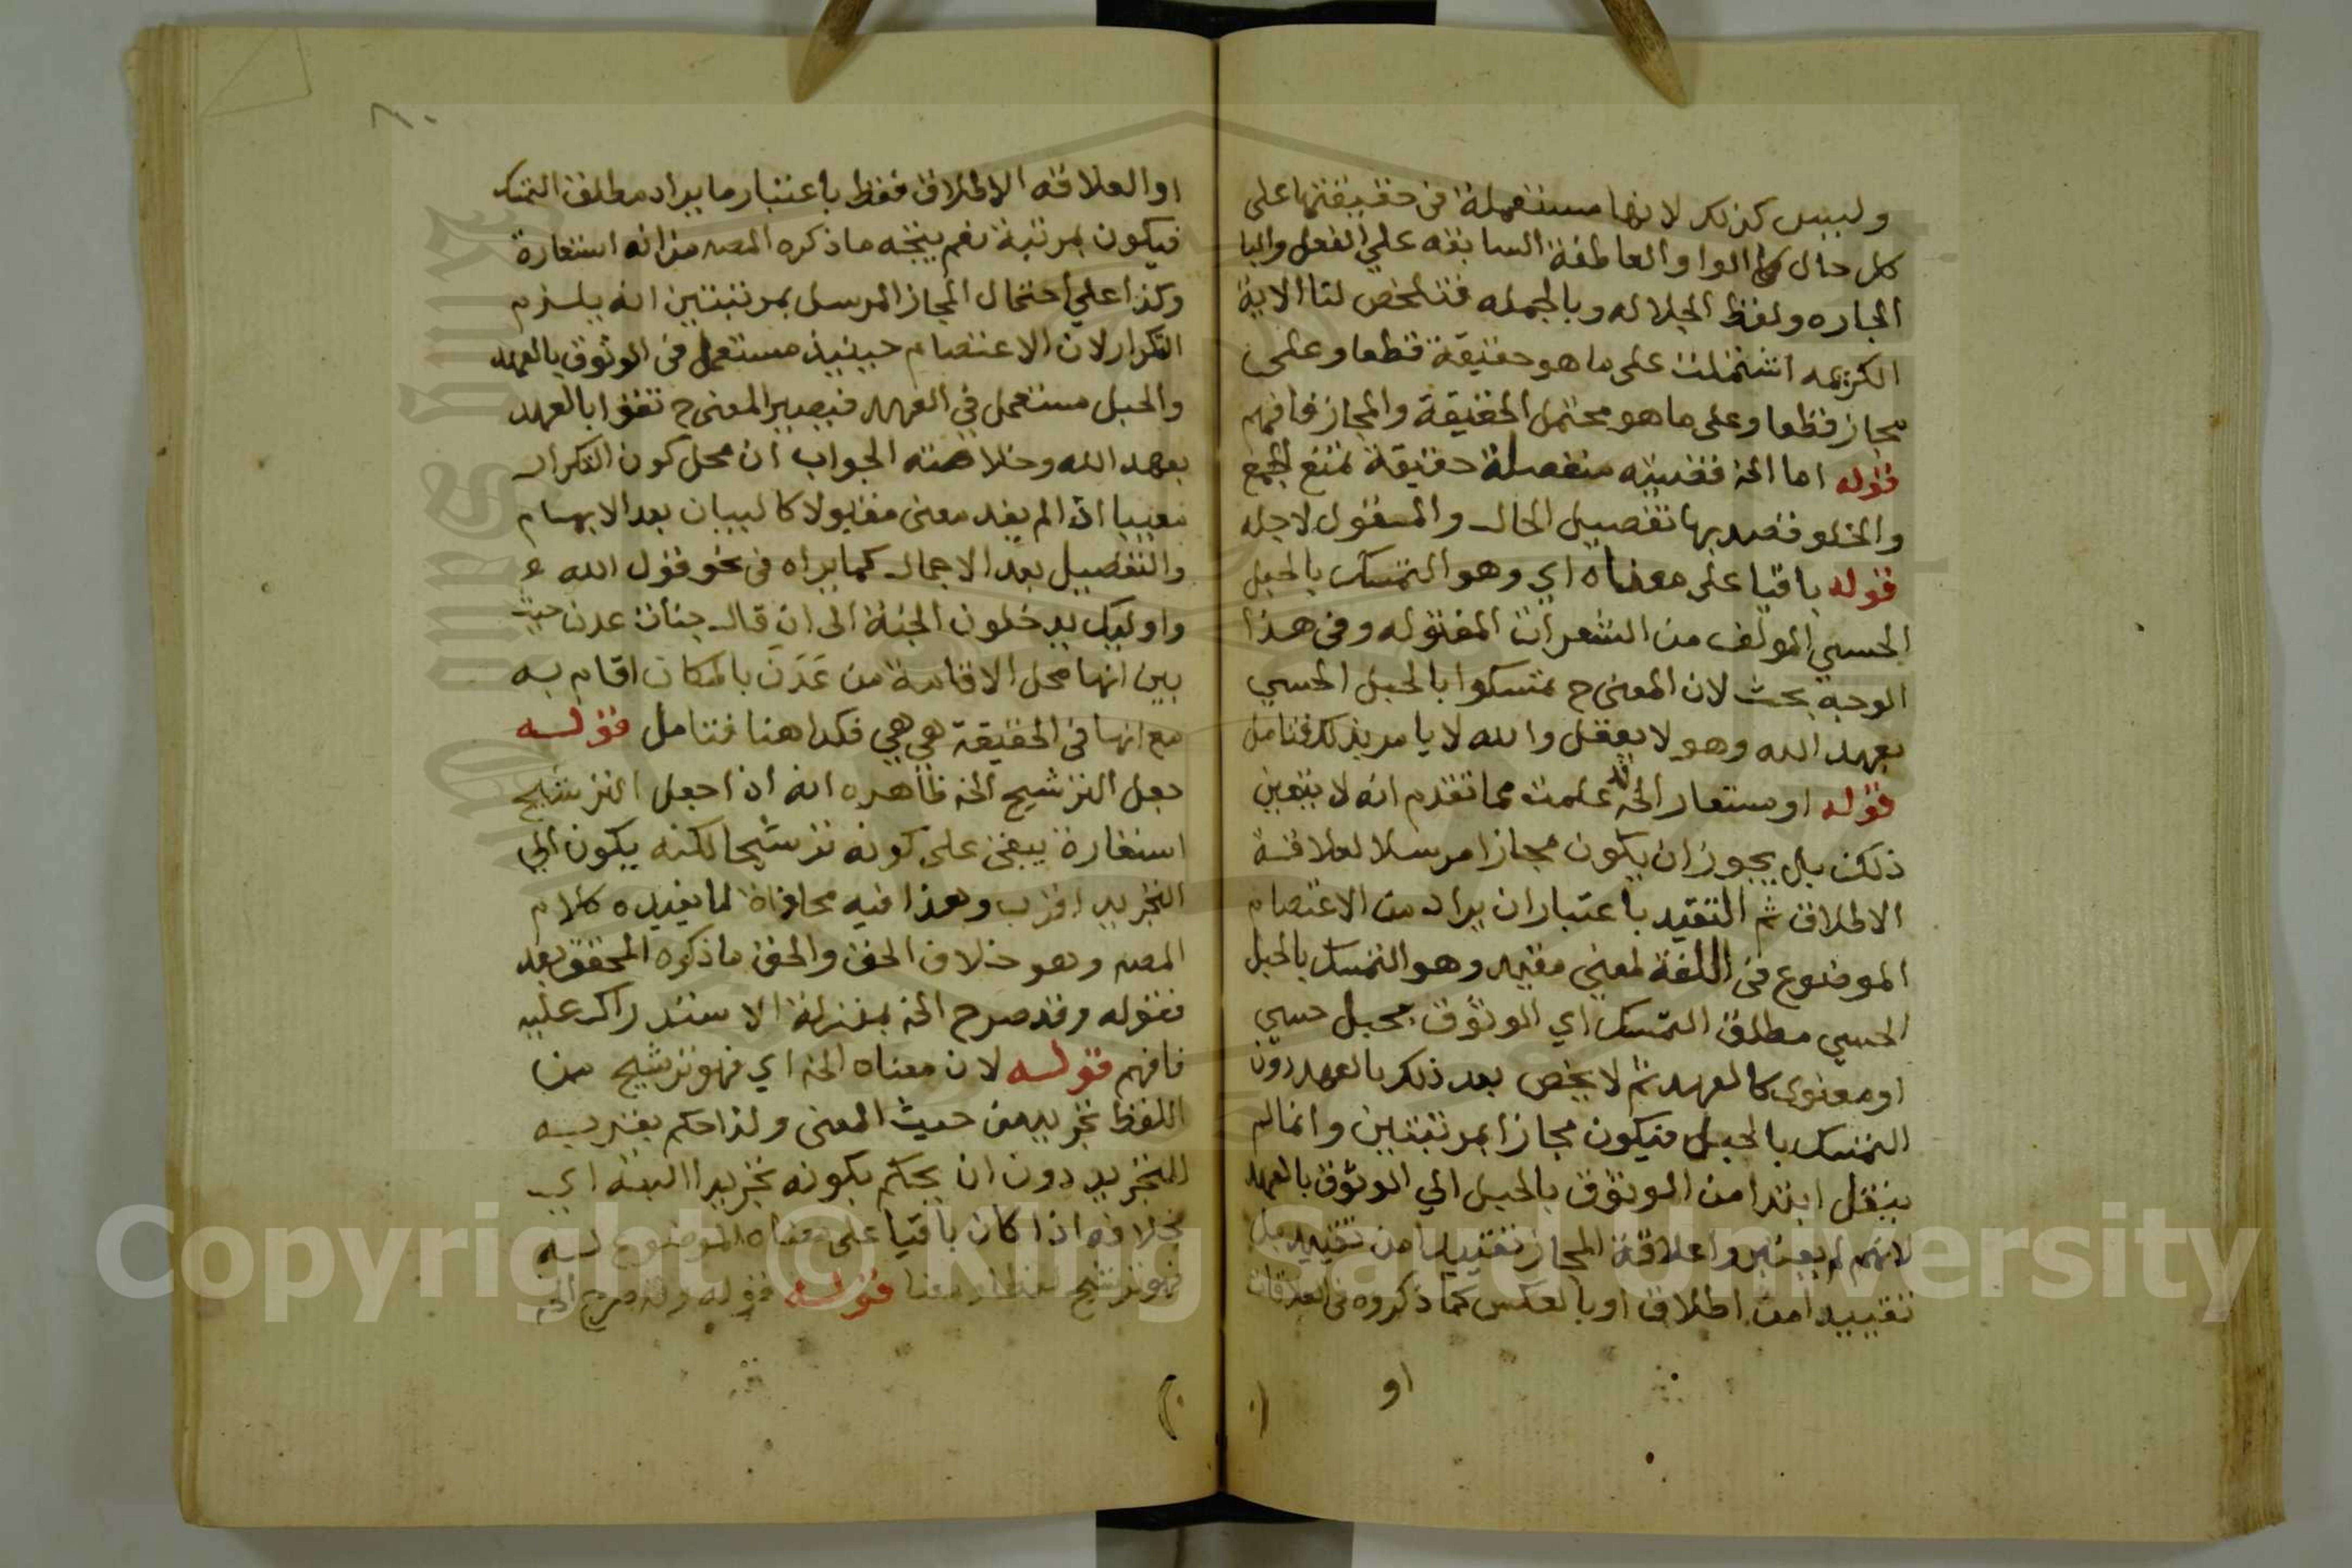 وليس كذلك لانها مستعملة في حقيقتها على
كل حال كالواو العاطفة السابقه علي الفعل والبا
الجاره ولفظ الجلاله وبالجمله فتلخص لنا الاية
الكريمه اشتملت على ما هو حقيقة قطعا وعلى
مجاز قطعا وعلى ما هو محتمل الحقيقة والمجاز فافهم
قوله اما الخ فقضيته منفصلة حقيقة تمنع الجمع
والخلو فقصد بها تفصيل الحال والمفعول لاجله
قوله باقيا على معناه اي وهو التمسك بالحبل
الحسي المولف من الشعرات المفتوله وفي هذا
الوجه بحث لان المعنى ح تمسكوا بالحبل الحسي
بعهد الله وهو لا يعقل والله لا يامر بذلك فتامل
قوله او مستعار الخ قد علمت مما تقدم انه لا يتعين
ذلك بل يجوز ان يكون مجازا مرسلا لعلاقة
الاطلاق ثم التقيد باعتبار ان يراد من الاعتصام
الموضوع في اللغة لمعنى مقيد وهو التمسك بالحبل
الحسي مطلق التمسك اي الوثوق بحبل حسي
او معنوي كالعهد ثم لا يخص بعد ذلك بالعهد دون
التمسك بالحبل فيكون مجازا بمرتبتين وانما لم
ينقل ابتدا من الوثوق بالحبل الي الوثوق بالعهد
لانهم لم يعتبروا علاقة المجاز تقييدا من تقييد بل
تقييد امن اطلاق او بالعكس كما ذكروه في العلاقات
او
او العلاقه الاطلاق فقط باعتبار ما يراد مطلق التمسك
فيكون بمرتبة نعم يتجه ما ذكره المصه من انه استعارة
وكذا علي احتمال المجاز المرسل بمرتبتين انه يلزم
التكرار لان الاعتصام حينيذ مستعمل في الوثوق بالعهد
والحبل مستعمل في العهد فيصير المعنى ح تثقوا بالعهد
بعهد الله وخلاصته الجواب ان محل كون التكرار
معيبا اذا لم يفد معنى مقبولا كالبيان بعد الابهام
والتفصيل بعد الاجمال كما يراه في نحو قول الله
واوليك يدخلون الجنة الى ان قال جنات عدن حيث
بين انها محل الاقامة من عَدَنَ بالمكان اقام به
مع انها في الحقيقة هي هي فكذا هنا فتامل قوله
جعل الترشيح الخ ظاهره انه اذا جعل الترشيح
استعارة يبقى على كونه ترشيحا لكنه يكون الي
التجريد اقرب وهذا فيه محاذاة لما يفيده كلام
المصه وهو خلاف الحق والحق ما ذكره المحقق بعد
فقوله وقد صرح الخ بمنزلة الاستدراك عليه
فافهم قوله لان معناه الخ اي فهو ترشيح من
اللفظ تجريد من حيث المعنى ولذا حكم بقربه
للتجريد دون ان يحكم بكونه تجريدا البتة اي
بخلافه اذا كان باقيا على معناه الموضوع له
فهو ترشيح لفظا ومعنا قوله قوله وقد صرح الخ
Copyright © King Saud University